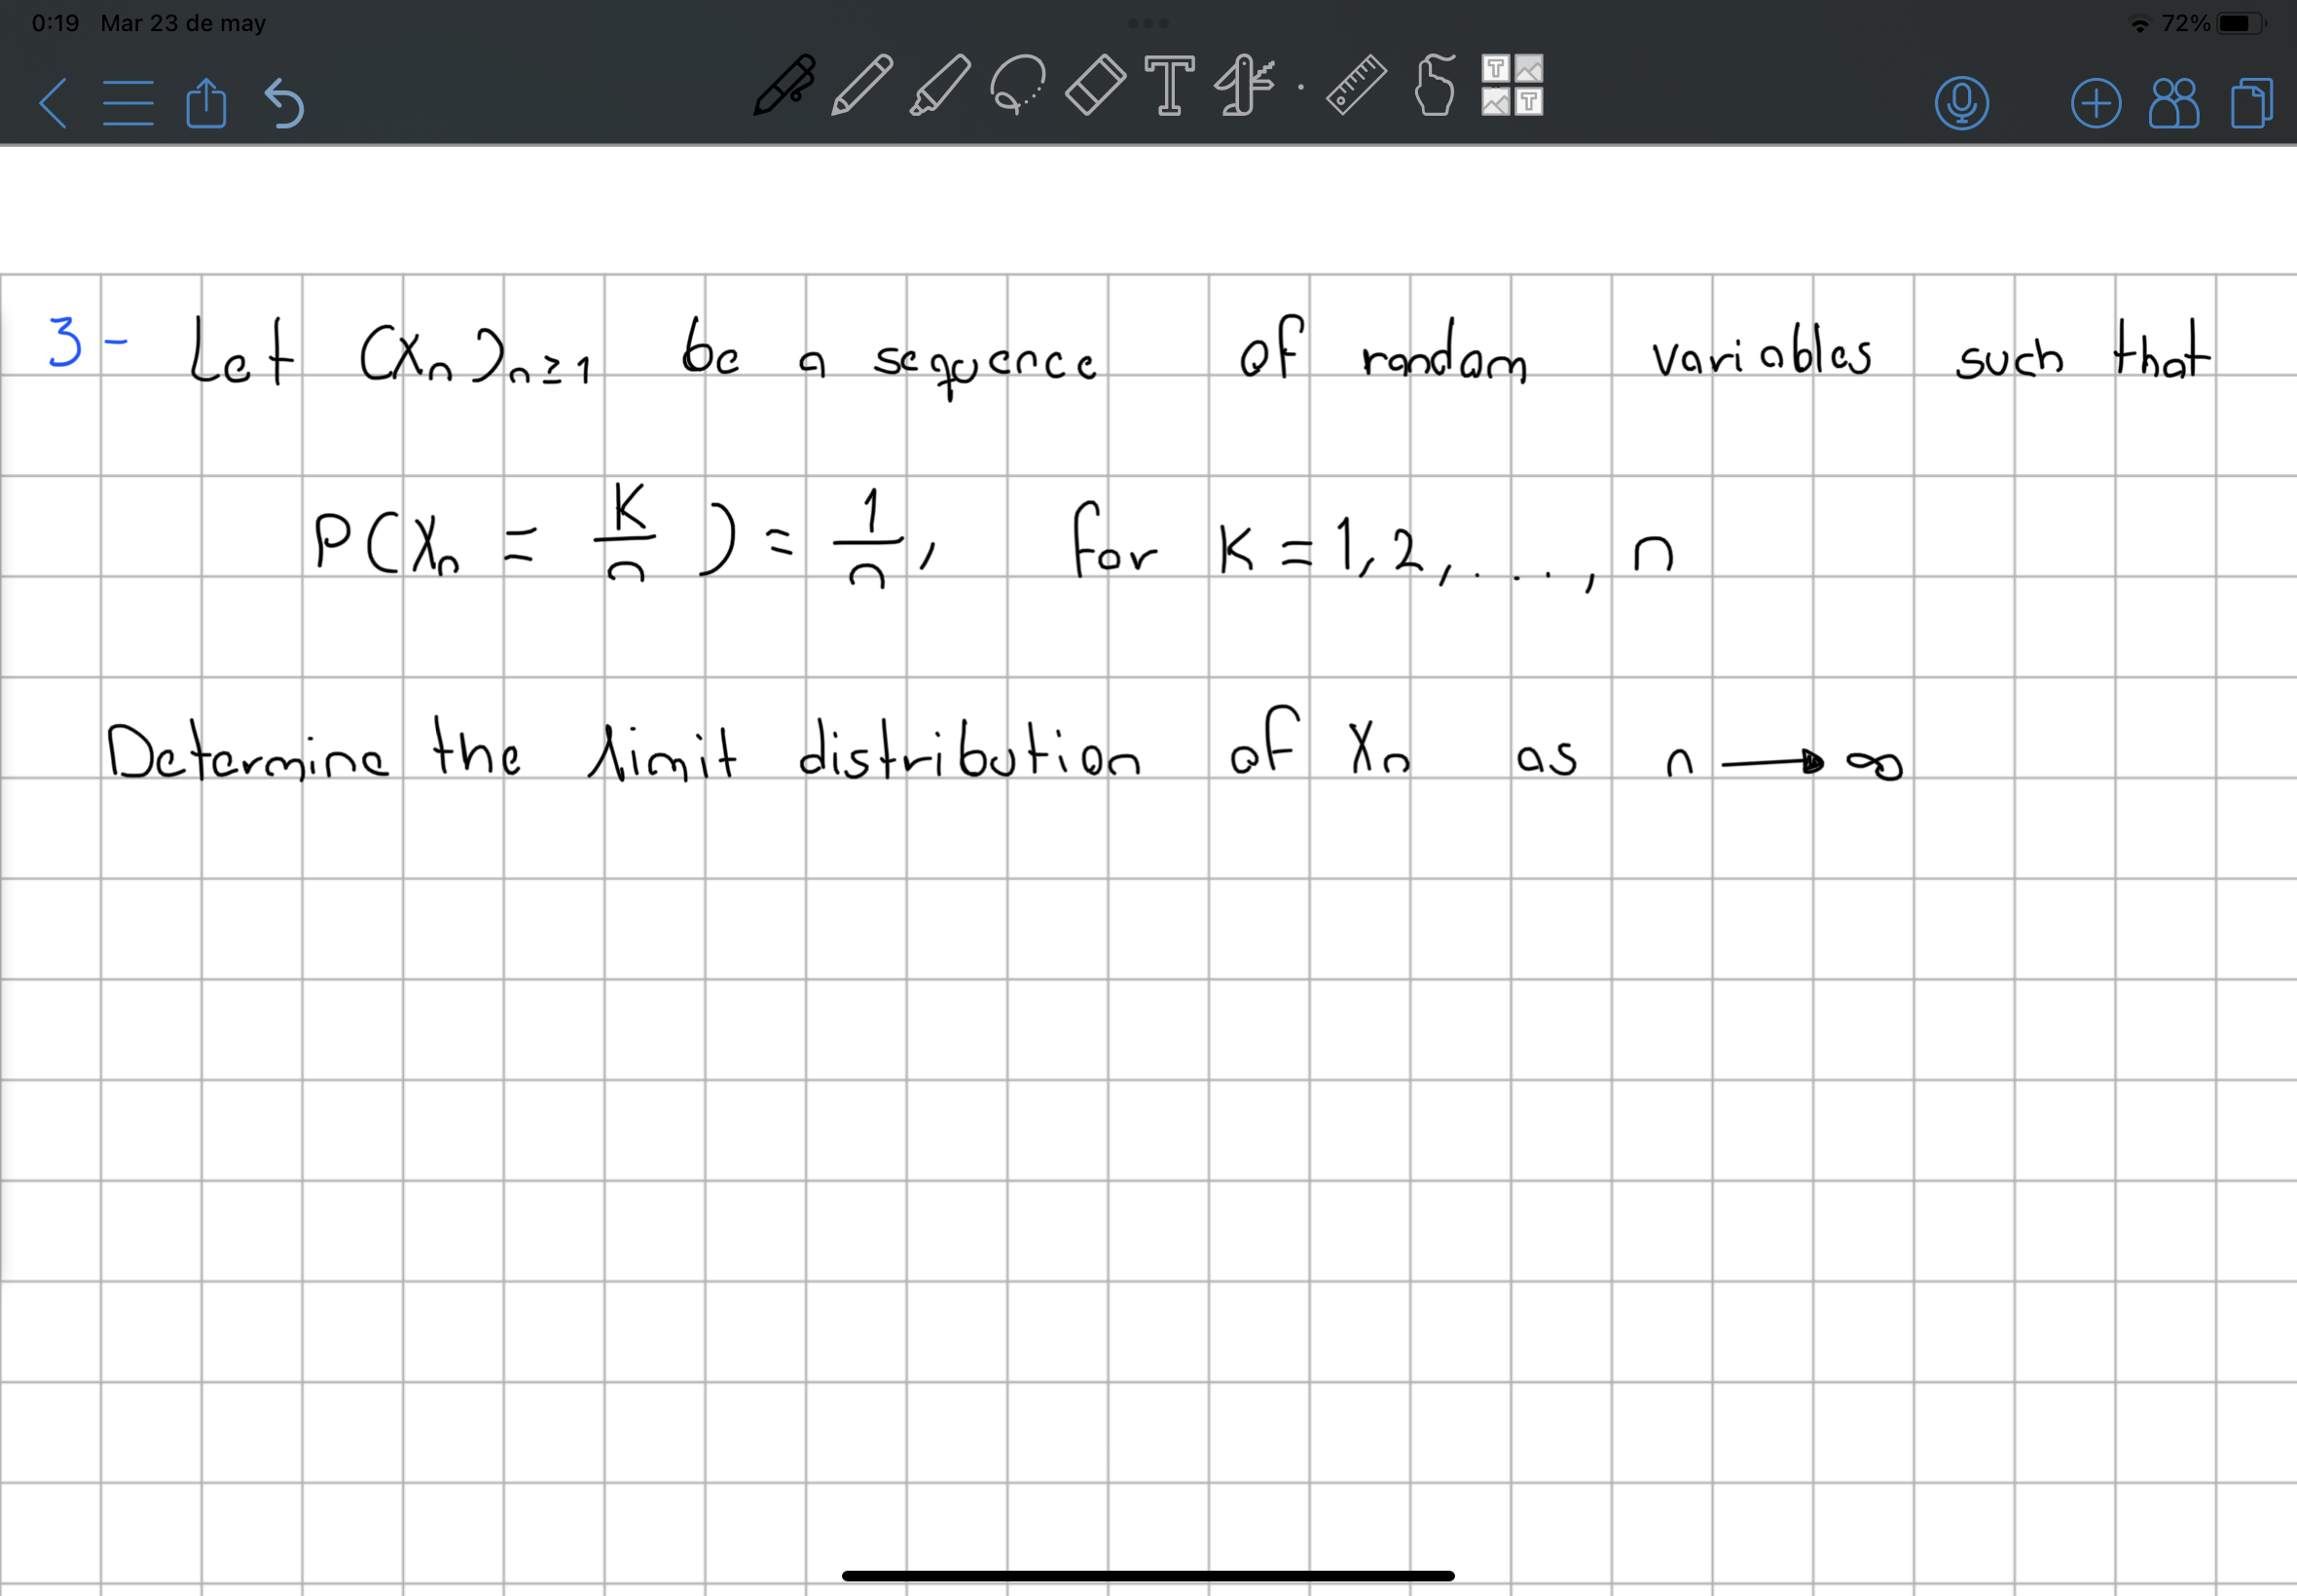 0:19 Mar 23 de may
72%
3- Let (Xn)n≥1 be a sequence of random variables such that
P(Xn = K/n) = 1/n, for K=1,2,...,n
Determine the limit distribution of Xn as n → ∞